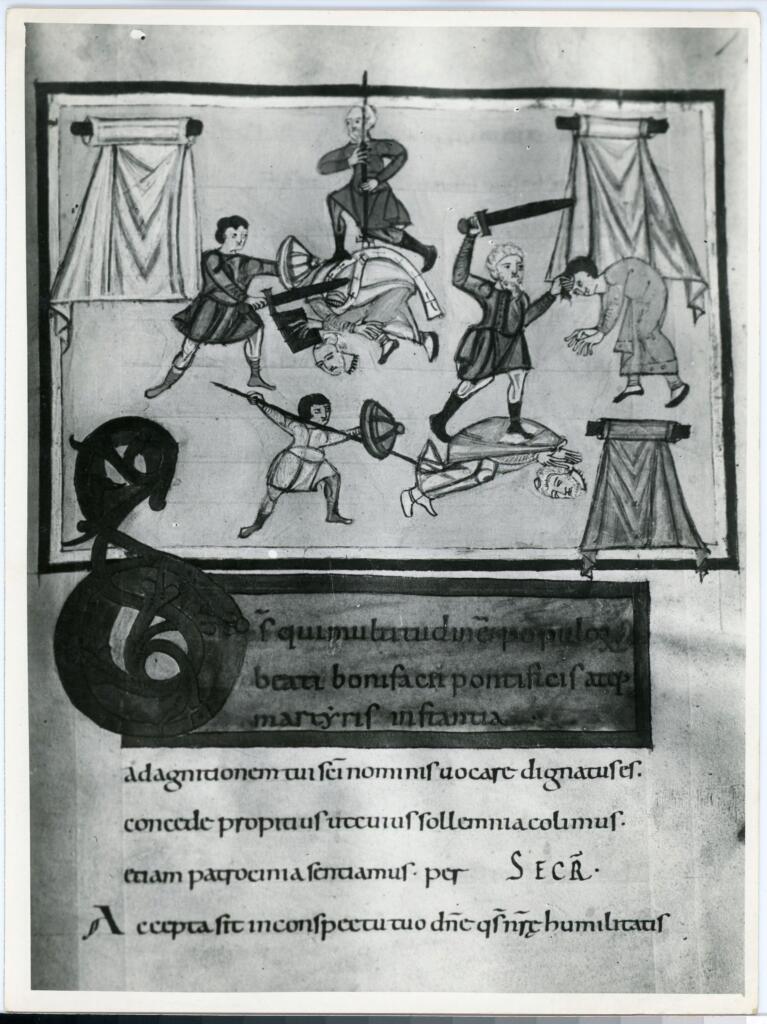 DS qui multitudinē populoꝝ
beati bonifacii pontificis atqꝫ
martyris instantia
ad agnitionem tui sc̄i nominis uocare dignatus es.
concede propitius ut cuius sollemnia colimus.
etiam patrocinia sentiamus. per SECR̄.
Accepta sit in conspectu tuo dn̄e qs̄ nr̄ę humilitatis